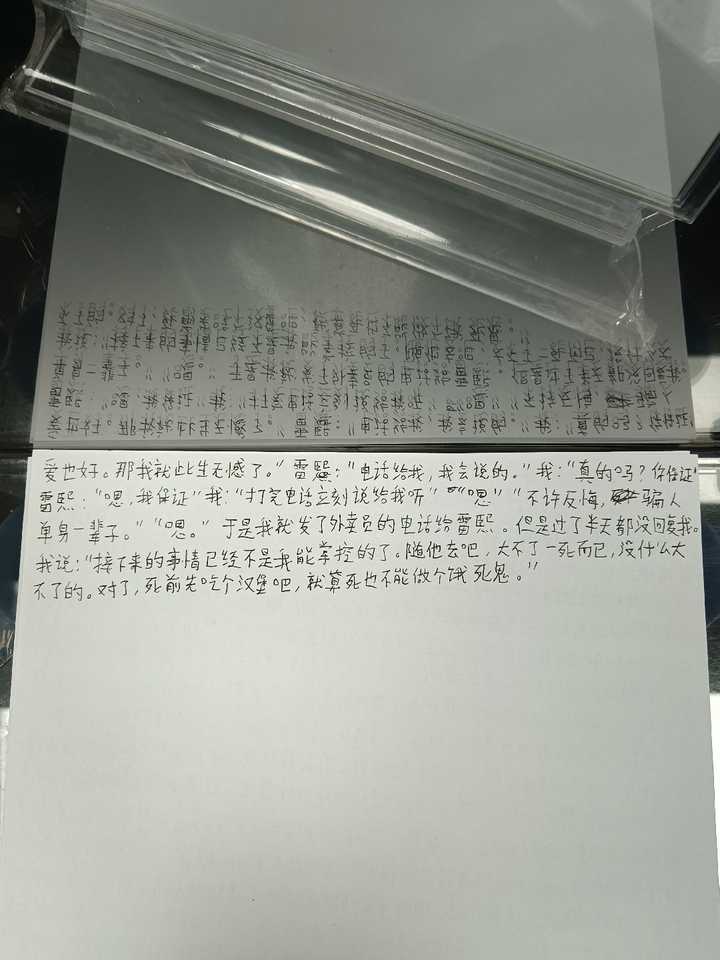 爱也好。那我就此生无憾了。”雷熙：“电话给我，我会说的。”我：“真的吗？你保证”
雷熙：“嗯，我保证”我：“打完电话立刻说给我听”“嗯”“不许反悔，骗人
单身一辈子。”“嗯。”于是我就发了外卖员的电话给雷熙。但是过了半天都没回复我。
我说：“接下来的事情已经不是我能掌控的了。随他去吧，大不了一死而已，没什么大
不了的。对了，死前先吃个汉堡吧，就算死也不能做个饿死鬼。”